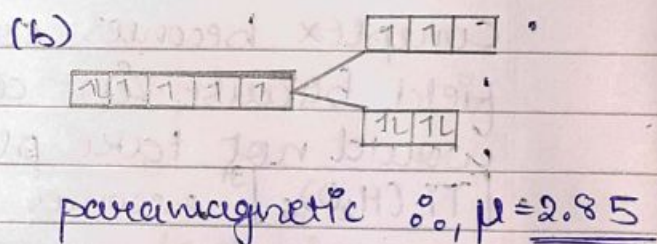 (b)
1 1
1L 1 1 1 1
1L 1L
paramagnetic ∴, μ = 2.85